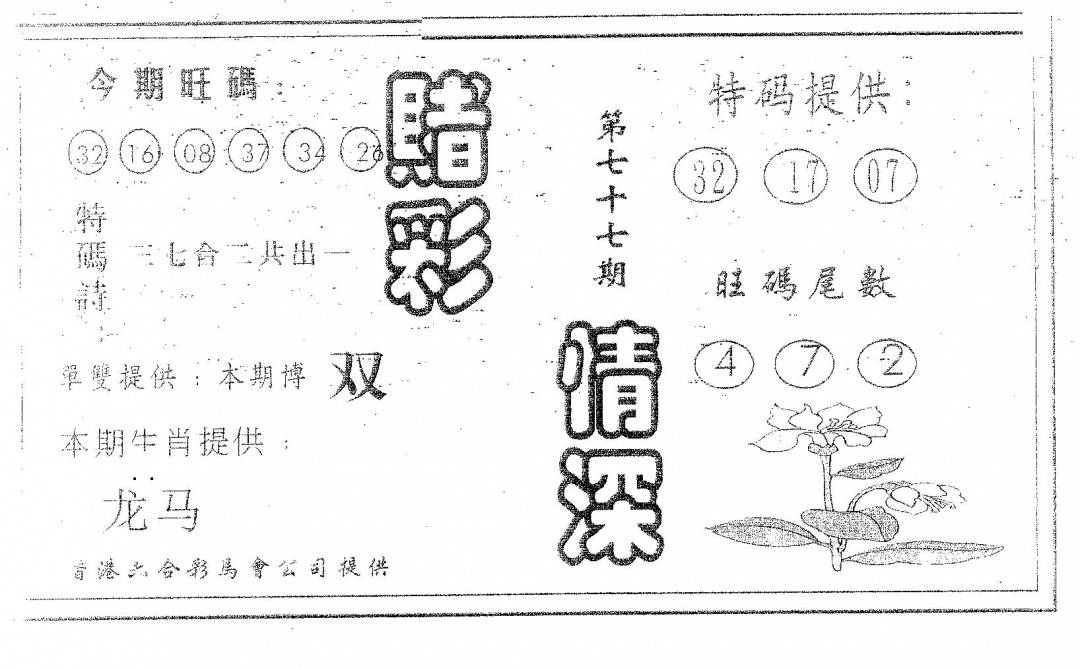 今期旺碼：
32 16 08 37 34 26
特碼詩：
三七合二共出一
單雙提供：本期博 双
本期生肖提供：
龙马
香港六合彩馬會公司提供
賭彩
情深
第七十七期
特码提供：
32 17 07
旺碼尾數
4 7 2